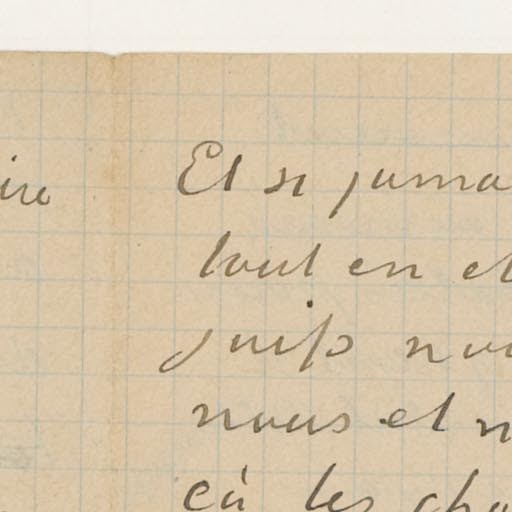 ire
Et si jama
tout en et
juifs nou
nous et n
çà les cho